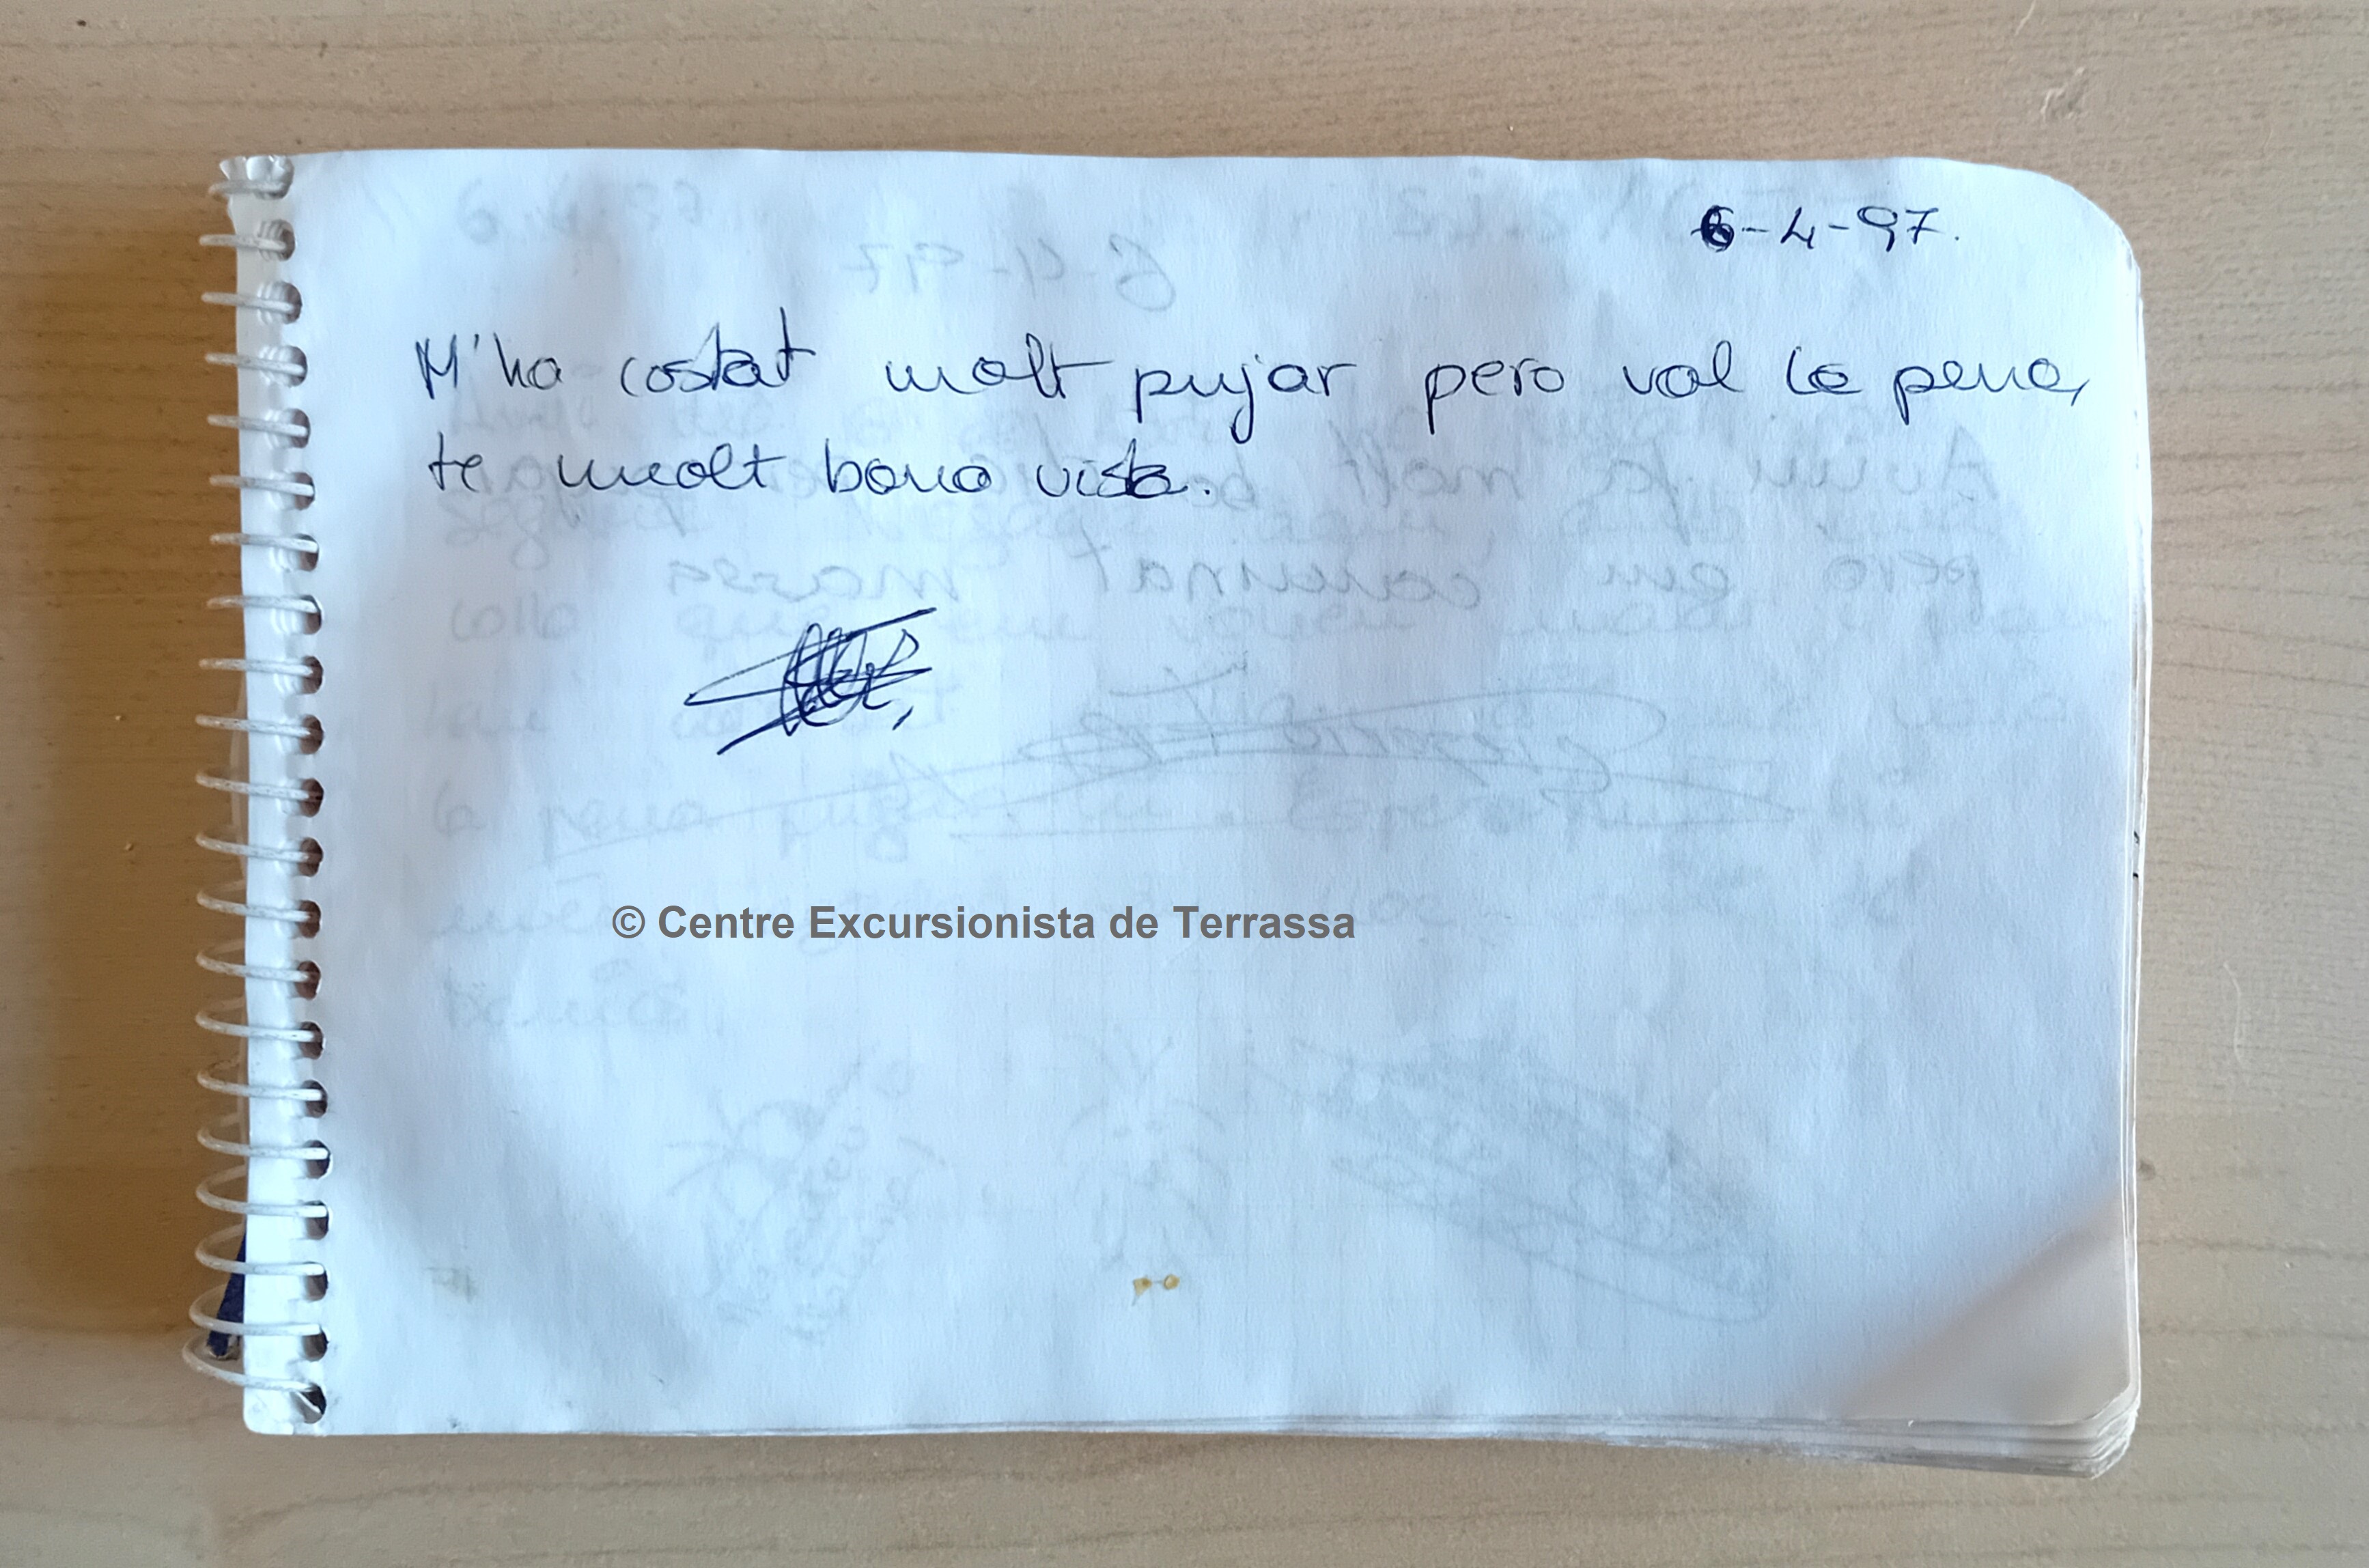 6-4-97.
M'ha costat molt pujar pero val la pena,
te molt bona vista.
© Centre Excursionista de Terrassa